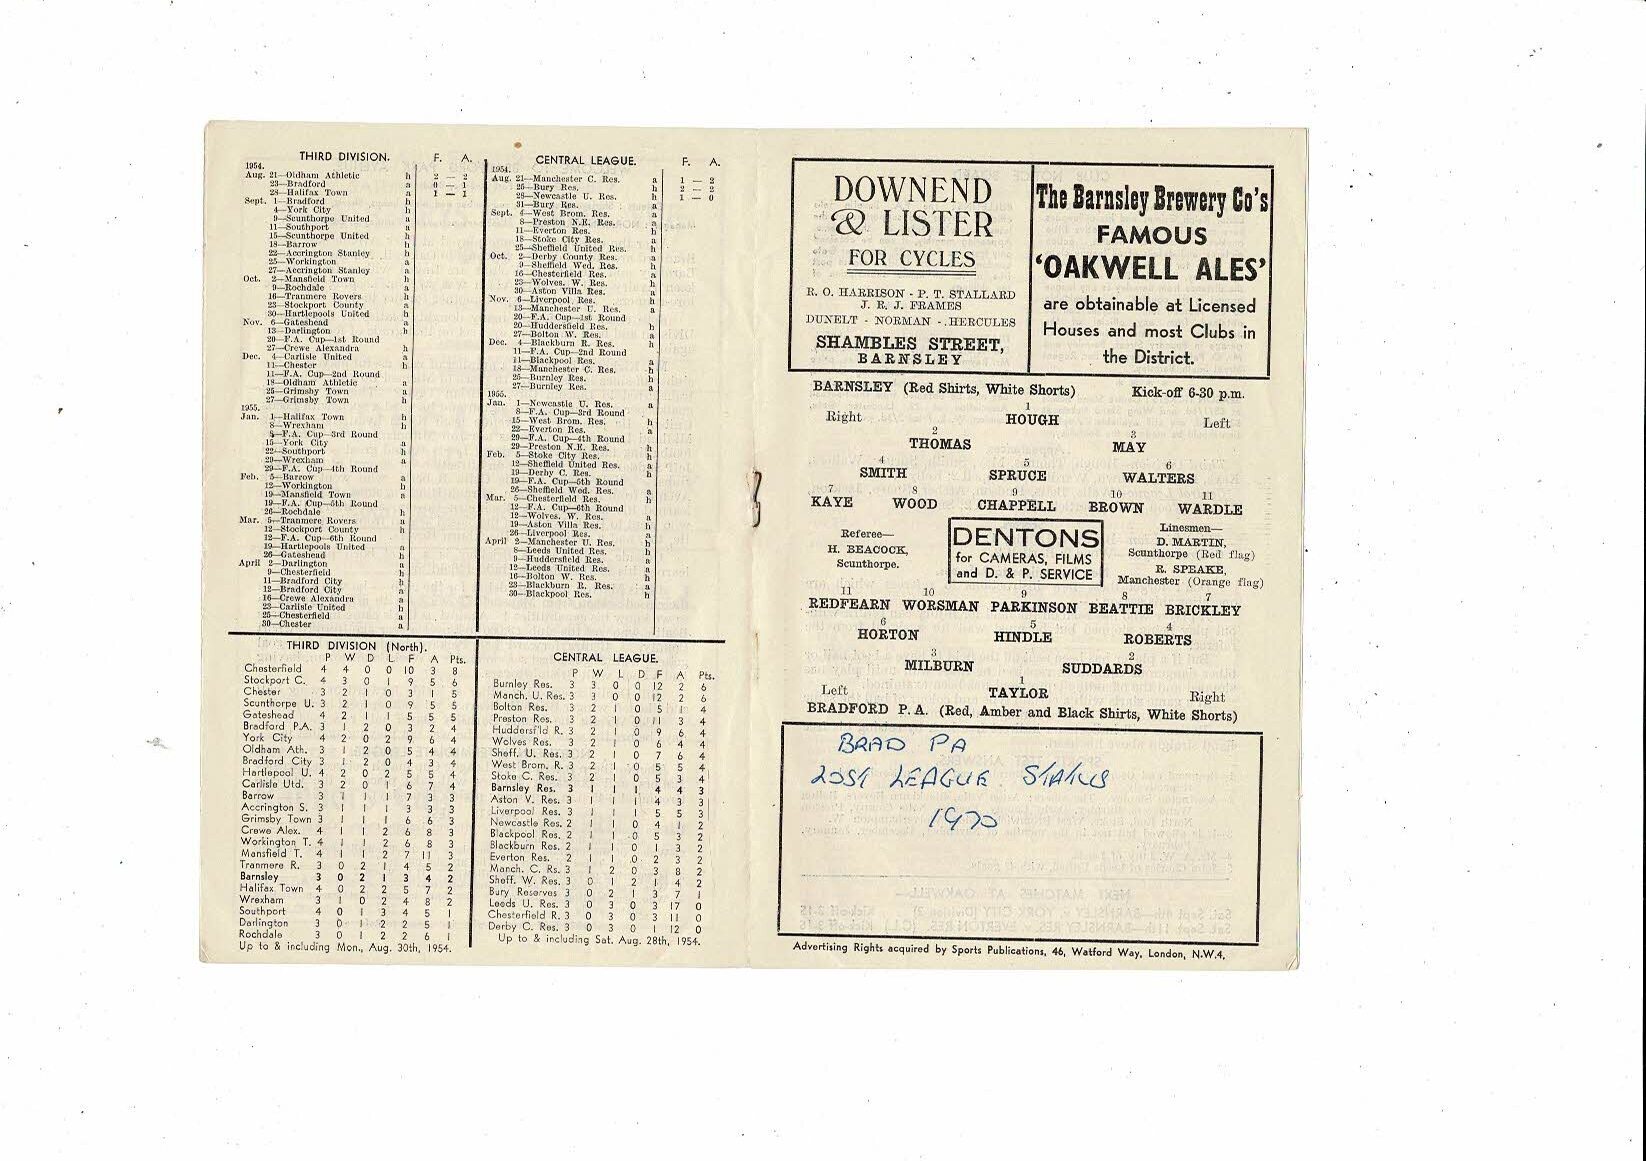 THIRD DIVISION. F. A.
1954.
Aug. 21—Oldham Athletic h 2 — 2
23—Bradford a 0 — 1
28—Halifax Town a 1 — 1
Sept. 1—Bradford h
4—York City h
9—Scunthorpe United a
11—Southport a
15—Scunthorpe United h
18—Barrow h
22—Accrington Stanley h
25—Workington a
27—Accrington Stanley a
Oct. 2—Mansfield Town h
9—Rochdale a
16—Tranmere Rovers h
23—Stockport County a
30—Hartlepools United h
Nov. 6—Gateshead a
13—Darlington h
20—F.A. Cup—1st Round
27—Crewe Alexandra h
Dec. 4—Carlisle United a
11—Chester h
11—F.A. Cup—2nd Round
18—Oldham Athletic a
25—Grimsby Town a
27—Grimsby Town h
1955.
Jan. 1—Halifax Town h
8—Wrexham h
8—F.A. Cup—3rd Round
15—York City a
22—Southport h
29—Wrexham a
29—F.A. Cup—4th Round
Feb. 5—Barrow a
12—Workington h
19—Mansfield Town a
19—F.A. Cup—5th Round
26—Rochdale h
Mar. 5—Tranmere Rovers a
12—Stockport County h
12—F.A. Cup—6th Round
19—Hartlepools United a
26—Gateshead h
April 2—Darlington a
9—Chesterfield h
11—Bradford City h
12—Bradford City a
16—Crewe Alexandra a
23—Carlisle United h
25—Chesterfield a
30—Chester a
CENTRAL LEAGUE. F. A.
1954.
Aug. 21—Manchester C. Res. a 1 — 2
25—Bury Res. h 2 — 2
28—Newcastle U. Res. h 1 — 0
31—Bury Res. a
Sept. 4—West Brom. Res. a
8—Preston N.E. Res. a
11—Everton Res. h
18—Stoke City Res. a
25—Sheffield United Res. h
Oct. 2—Derby County Res. a
9—Sheffield Wed. Res. h
16—Chesterfield Res. a
23—Wolves. W. Res. h
30—Aston Villa Res. a
Nov. 6—Liverpool Res. h
13—Manchester U. Res. a
20—F.A. Cup—1st Round
20—Huddersfield Res. h
27—Bolton W. Res. a
Dec. 4—Blackburn R. Res. h
11—F.A. Cup—2nd Round
11—Blackpool Res. a
18—Manchester C. Res. h
25—Burnley Res. h
27—Burnley Res. a
1955.
Jan. 1—Newcastle U. Res. a
8—F.A. Cup—3rd Round
15—West Brom. Res. h
22—Everton Res. a
29—F.A. Cup—4th Round
29—Preston N.E. Res. h
Feb. 5—Stoke City Res. h
12—Sheffield United Res. a
19—Derby C. Res. h
19—F.A. Cup—5th Round
26—Sheffield Wed. Res. a
Mar. 5—Chesterfield Res. h
12—F.A. Cup—6th Round
12—Wolves. W. Res. a
19—Aston Villa Res. h
26—Liverpool Res. a
April 2—Manchester U. Res. h
8—Leeds United Res. h
9—Huddersfield Res. a
12—Leeds United Res. a
16—Bolton W. Res. h
23—Blackburn R. Res. a
30—Blackpool Res. h
THIRD DIVISION (North).
P W D L F A Pts.
Chesterfield 4 4 0 0 10 3 8
Stockport C. 4 3 0 1 9 5 6
Chester 3 2 1 0 3 1 5
Scunthorpe U. 3 2 1 0 9 5 5
Gateshead 4 2 1 1 5 5 5
Bradford P.A. 3 1 2 0 3 2 4
York City 4 2 0 2 9 6 4
Oldham Ath. 3 1 2 0 5 4 4
Bradford City 3 1 2 0 4 3 4
Hartlepool U. 4 2 0 2 5 5 4
Carlisle Utd. 3 2 0 1 6 7 4
Barrow 3 1 1 1 7 3 3
Accrington S. 3 1 1 1 3 3 3
Grimsby Town 3 1 1 1 6 6 3
Crewe Alex. 4 1 1 2 6 8 3
Workington T. 4 1 1 2 6 8 3
Mansfield T. 4 1 1 2 7 11 3
Tranmere R. 3 0 2 1 4 5 2
Barnsley 3 0 2 1 3 4 2
Halifax Town 4 0 2 2 5 7 2
Wrexham 3 1 0 2 4 8 2
Southport 4 0 1 3 4 5 1
Darlington 3 0 1 2 2 5 1
Rochdale 3 0 1 2 2 6 1
Up to & including Mon., Aug. 30th, 1954.
CENTRAL LEAGUE.
P W L D F A Pts.
Burnley Res. 3 3 0 0 12 2 6
Manch. U. Res. 3 3 0 0 12 2 6
Bolton Res. 3 2 1 0 5 1 4
Preston Res. 3 2 1 0 11 3 4
Huddersf'ld R. 3 2 1 0 9 6 4
Wolves Res. 3 2 1 0 6 4 4
Sheff. U. Res. 3 2 1 0 7 6 4
West Brom. R. 3 2 1 0 5 5 4
Stoke C. Res. 3 2 1 0 5 3 4
Barnsley Res. 3 1 1 1 4 4 3
Aston V. Res. 3 1 1 1 4 3 3
Liverpool Res. 3 1 1 1 5 5 3
Newcastle Res. 2 1 1 0 4 1 2
Blackpool Res. 2 1 1 0 5 3 2
Blackburn Res. 2 1 1 0 1 3 2
Everton Res. 2 1 1 0 2 3 2
Manch. C. Rs. 3 1 2 0 3 8 2
Sheff. W. Res. 3 0 1 2 1 4 2
Bury Reserves 3 0 2 1 3 7 1
Leeds U. Res. 3 0 3 0 3 17 0
Chesterfield R. 3 0 3 0 3 11 0
Derby C. Res. 3 0 3 0 1 12 0
Up to & including Sat. Aug. 28th, 1954.
DOWNEND
& LISTER
FOR CYCLES
R. O. HARRISON - P. T. STALLARD
J. R. J. FRAMES
DUNELT - NORMAN - HERCULES
SHAMBLES STREET,
BARNSLEY
The Barnsley Brewery Co's
FAMOUS
'OAKWELL ALES'
are obtainable at Licensed
Houses and most Clubs in
the District.
BARNSLEY (Red Shirts, White Shorts) Kick-off 6-30 p.m.
1
Right HOUGH Left
2 3
THOMAS MAY
4 5 6
SMITH SPRUCE WALTERS
7 8 9 10 11
KAYE WOOD CHAPPELL BROWN WARDLE
Referee—
H. BEACOCK,
Scunthorpe.
DENTONS
for CAMERAS, FILMS
and D. & P. SERVICE
Linesmen—
D. MARTIN,
Scunthorpe (Red flag)
R. SPEAKE,
Manchester (Orange flag)
11 10 9 8 7
REDFEARN WORSMAN PARKINSON BEATTIE BRICKLEY
6 5 4
HORTON HINDLE ROBERTS
3 2
MILBURN SUDDARDS
1
Left TAYLOR Right
BRADFORD P.A. (Red, Amber and Black Shirts, White Shorts)
BRAD PA
LOST LEAGUE STATUS
1970
Advertising Rights acquired by Sports Publications, 46, Watford Way, London, N.W.4,